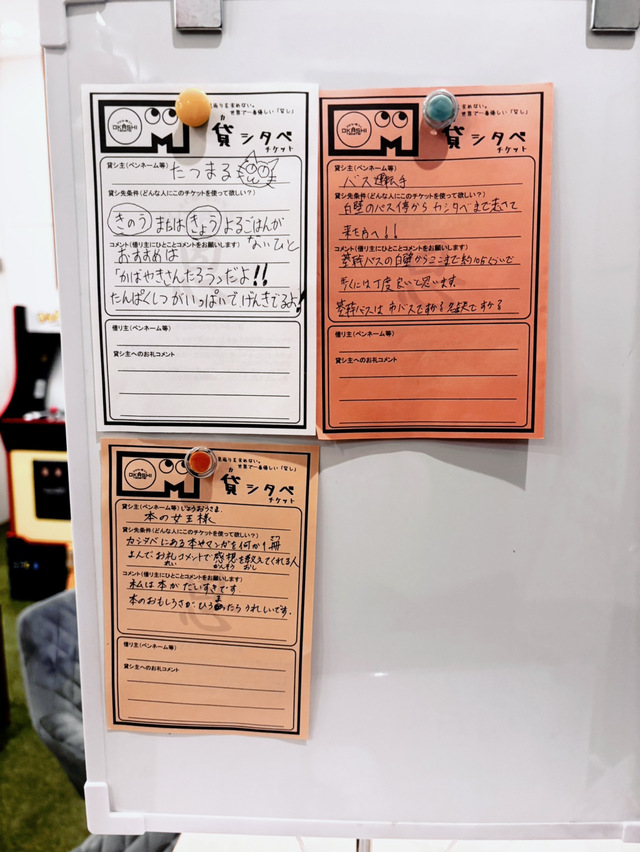 見返りを求めない。
世界で一番優しい「なし」
OKASHI
貸シタベ
チケット
貸シ主(ペンネーム等)
たつまる
貸シ先条件(どんな人にこのチケットを使って欲しい?)
きのう または きょう よるごはんが
ないひと
コメント(借リ主にひとことコメントをお願いします)
おすすめは
「かばやきさんたろうっだよ!!
たんぱくしつがいっぱいでげんきでるよ!
借リ主(ペンネーム等)
貸シ主へのお礼コメント
見返りを求めない。
世界で一番優しい「なし」
OKASHI
貸シタベ
チケット
貸シ主(ペンネーム等)
バス運転手
貸シ先条件(どんな人にこのチケットを使って欲しい?)
白壁のバス停からカシタベまで走って
来た方へ!!
コメント(借リ主にひとことコメントをお願いします)
バスの白壁からここまで約
歩くには丁度良いと思います。
バスは市バスで
借リ主(ペンネーム等)
貸シ主へのお礼コメント
見返りを求めない。
世界で一番優しい「なし」
OKASHI
貸シタベ
チケット
貸シ主(ペンネーム等)じょおうさま
本の女王様
貸シ先条件(どんな人にこのチケットを使って欲しい?)
カシタベにある本やマンガを何か1冊
よんで、お礼コメントで感想を教えてくれる人
れい かんそう おし
コメント(借リ主にひとことコメントをお願いします)
私は本がだいすきです。
本のおもしろさが、ひろまったらうれしいです。
借リ主(ペンネーム等)
貸シ主へのお礼コメント